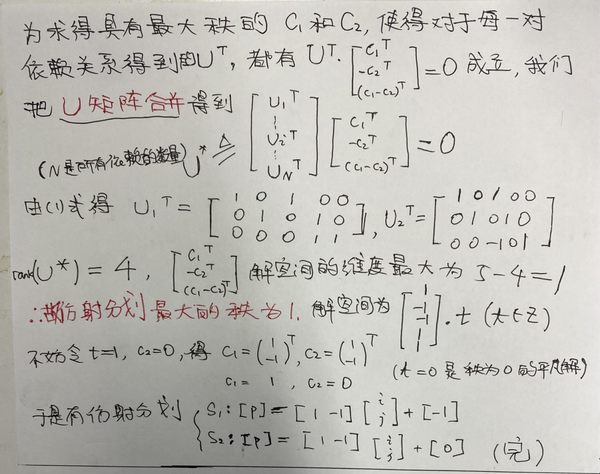 为求得具有最大秩的 C₁ 和 C₂, 使得对于每一对
依赖关系得到的Uᵀ, 都有 Uᵀ· [C₁ᵀ; -C₂ᵀ; (c₁-c₂)ᵀ] = 0 成立, 我们
把 U矩阵合并得到 [U₁ᵀ; ⋮; Uᵢᵀ; ⋮; U_Nᵀ] [C₁ᵀ; -C₂ᵀ; (c₁-c₂)ᵀ] = 0
(N是所有依赖的数量) U* ≜
由(1)式得 U₁ᵀ = [1 0 1 0 0; 0 1 0 1 0; 0 0 0 1 1], U₂ᵀ = [1 0 1 0 0; 0 1 0 1 0; 0 0 -1 0 1]
rank(U*) = 4, [C₁ᵀ; -C₂ᵀ; (c₁-c₂)ᵀ] 解空间的维度最大为 5-4=1
∴ 仿射分划最大的秩为1. 解空间为 [1; 1; -1; -1; 1]·t (t∈Z)
不妨令 t=1, c₂=0, 得 C₁=(1; -1)ᵀ, C₂=(1; -1)ᵀ
c₁ = 1, c₂ = 0 (t=0 是秩为0的平凡解)
于是有仿射分划 { S₁: [p] = [1 -1] [i; j] + [-1]
S₂: [p] = [1 -1] [i; j] + [0] (完)